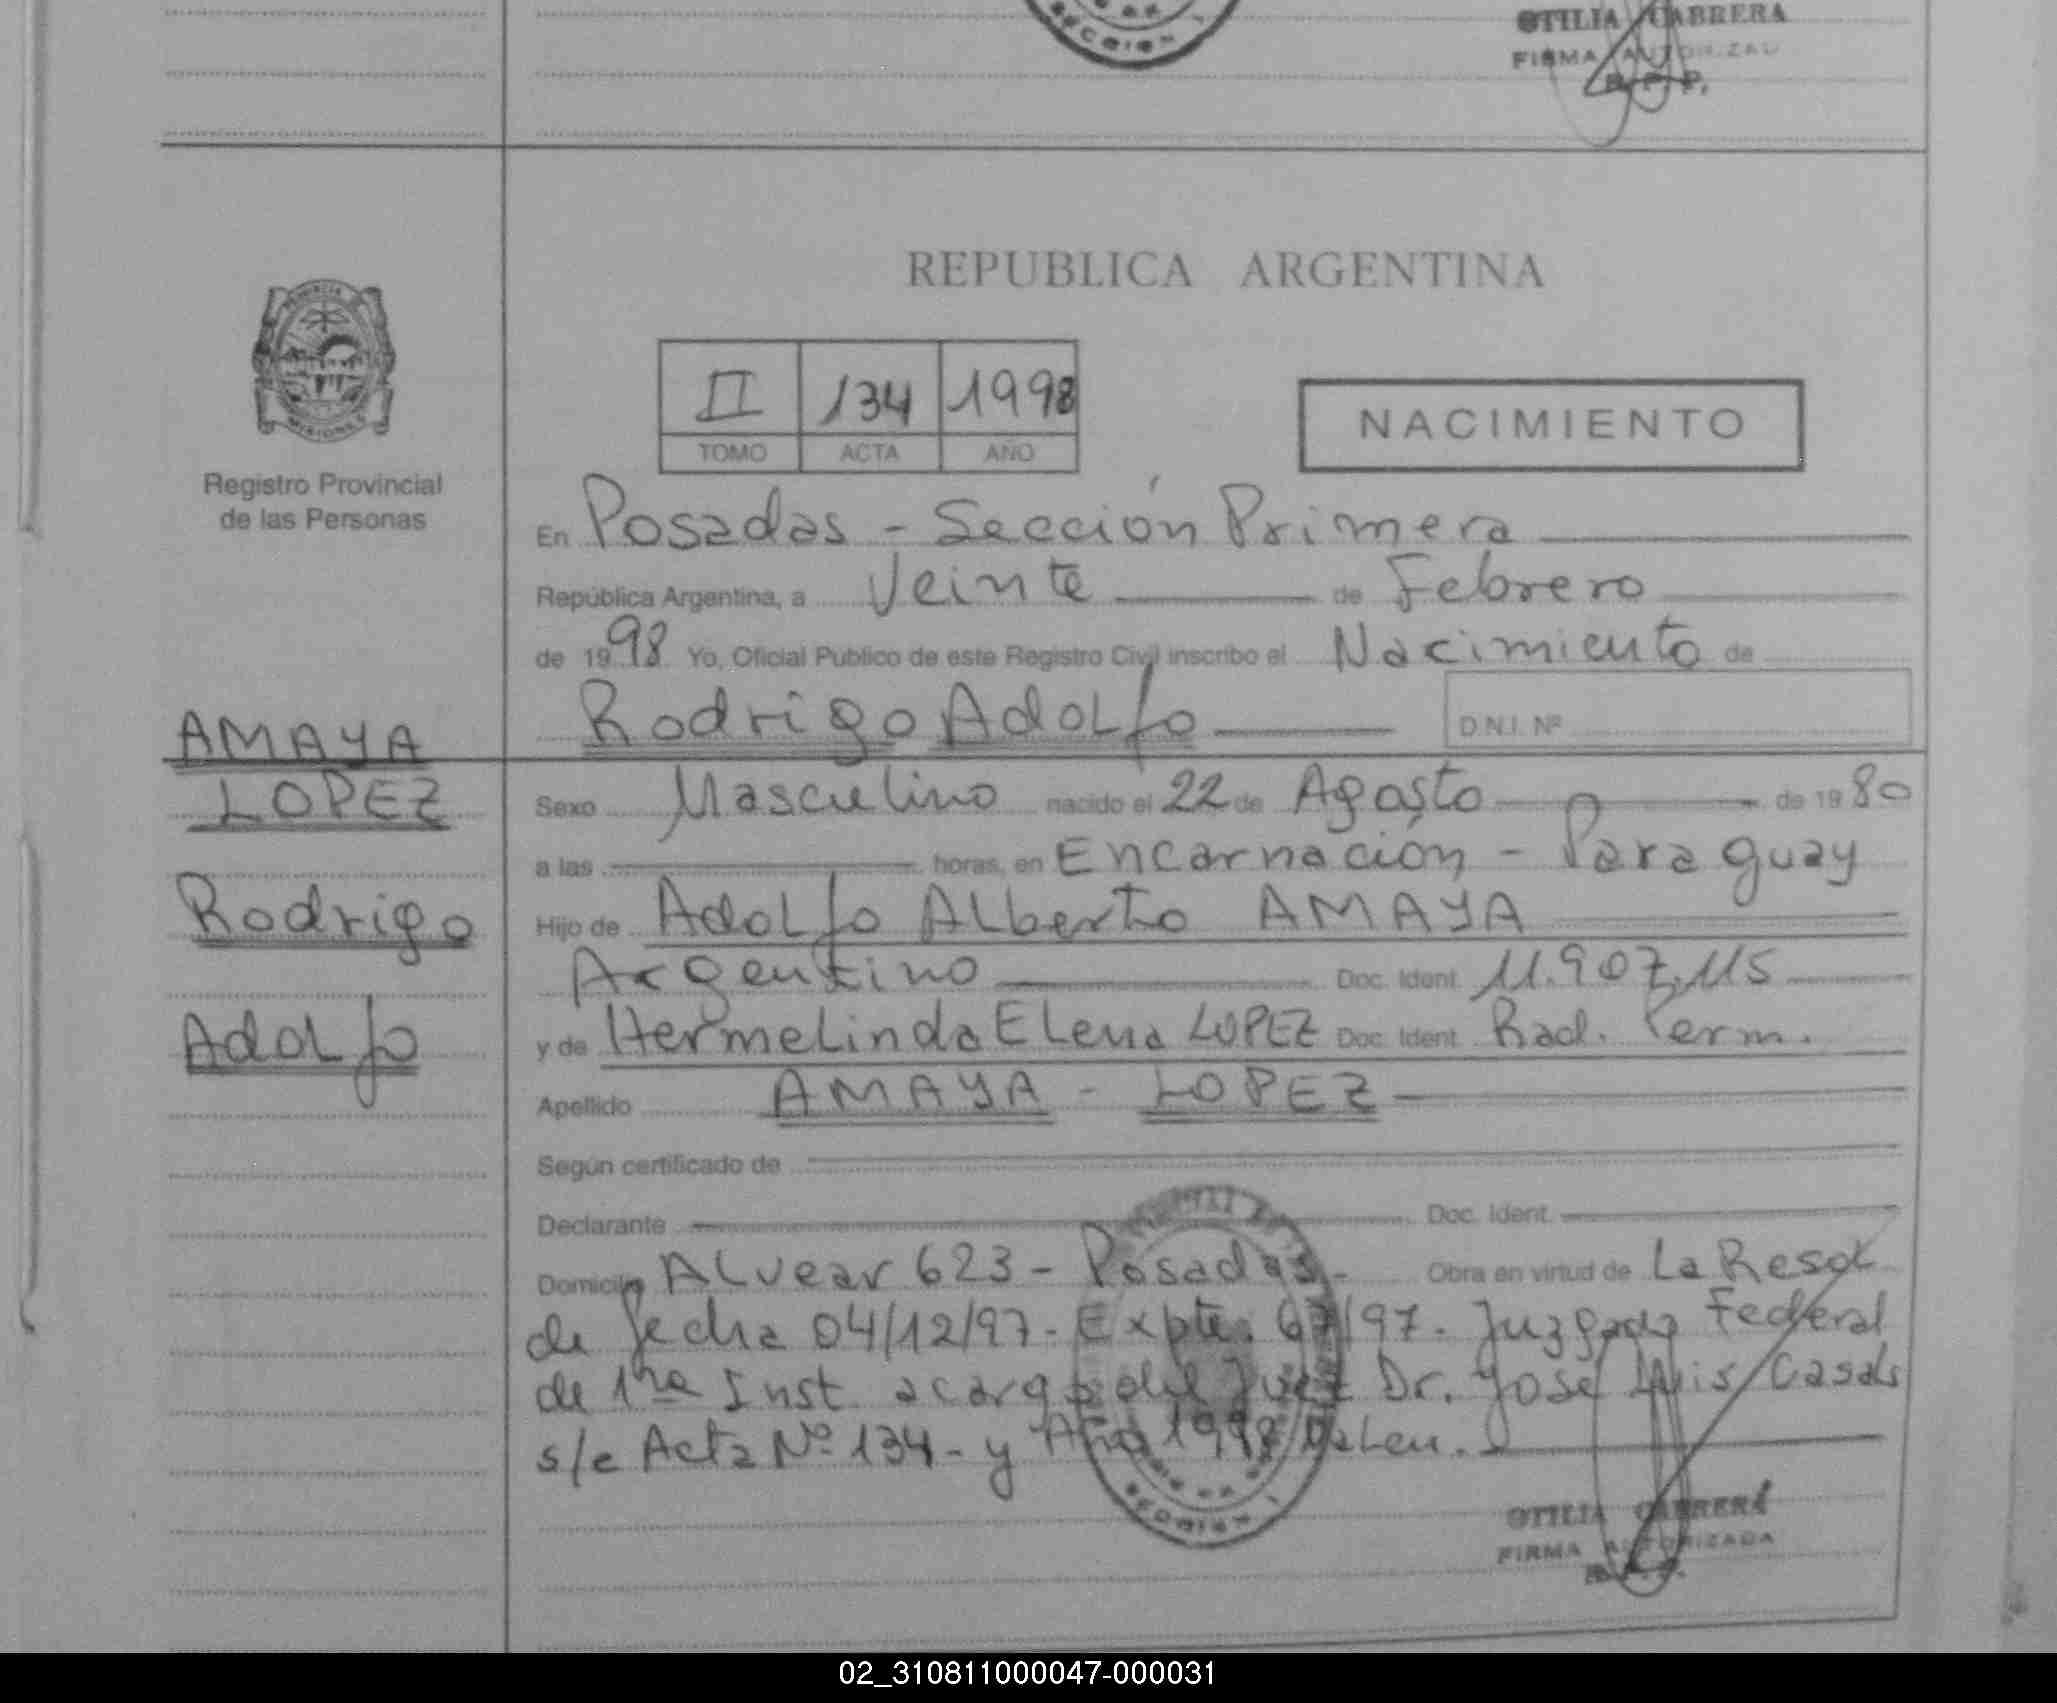 OTILIA CABRERA
SECCION I
FIRMA AUTORIZAD
R. P. P.
REPUBLICA ARGENTINA
PROVINCIA DE
MISIONES
II 134 1998
TOMO ACTA AÑO
NACIMIENTO
Registro Provincial
de las Personas
En Posadas - Sección Primera
República Argentina, a Veinte de Febrero
de 1998 Yo, Oficial Publico de este Registro Civil inscribo el Nacimiento de
Rodrigo Adolfo D.N.I. Nº
AMAYA
LOPEZ
Rodrigo
Adolfo
Sexo Masculino nacido el 22 de Agosto de 1980
a las horas, en Encarnación - Paraguay
Hijo de Adolfo Alberto AMAYA
Argentino Doc. Ident. 11.907.115
y de Hermelinda Elena LOPEZ Doc. Ident. Rad. Perm.
Apellido AMAYA - LOPEZ
Según certificado de
Declarante Doc. Ident.
Domicilio Alvear 623 - Posadas - Obra en virtud de La Resol
de fecha 04/12/97. Expte. 67/97. Juzgado Federal
de 1ra Inst. a cargo del Juez Dr. José Luis Casals
s/e Acta Nº 134 - y Año 1998
SECCION I
OTILIA CABRERA
FIRMA AUTORIZADA